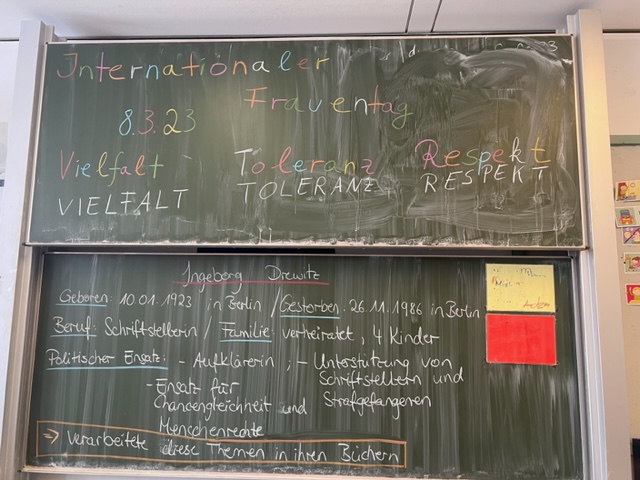 Internationaler
Frauentag
8.3.23
Vielfalt Toleranz Respekt
VIELFALT TOLERANZ RESPEKT
Ingeborg Drewitz
Geboren: 10.01.1923 in Berlin / Gestorben: 26.11.1986 in Berlin
Beruf: Schriftstellerin / Familie: verheiratet, 4 Kinder
Politischer Ensatz: - Aufklärerin, - Unterstützung von
Schriftstellern und
Strafgefangenen
- Ensatz für
Chancengleichheit und
Menschenrechte
⇒ verarbeitete diese Themen in ihren Büchern